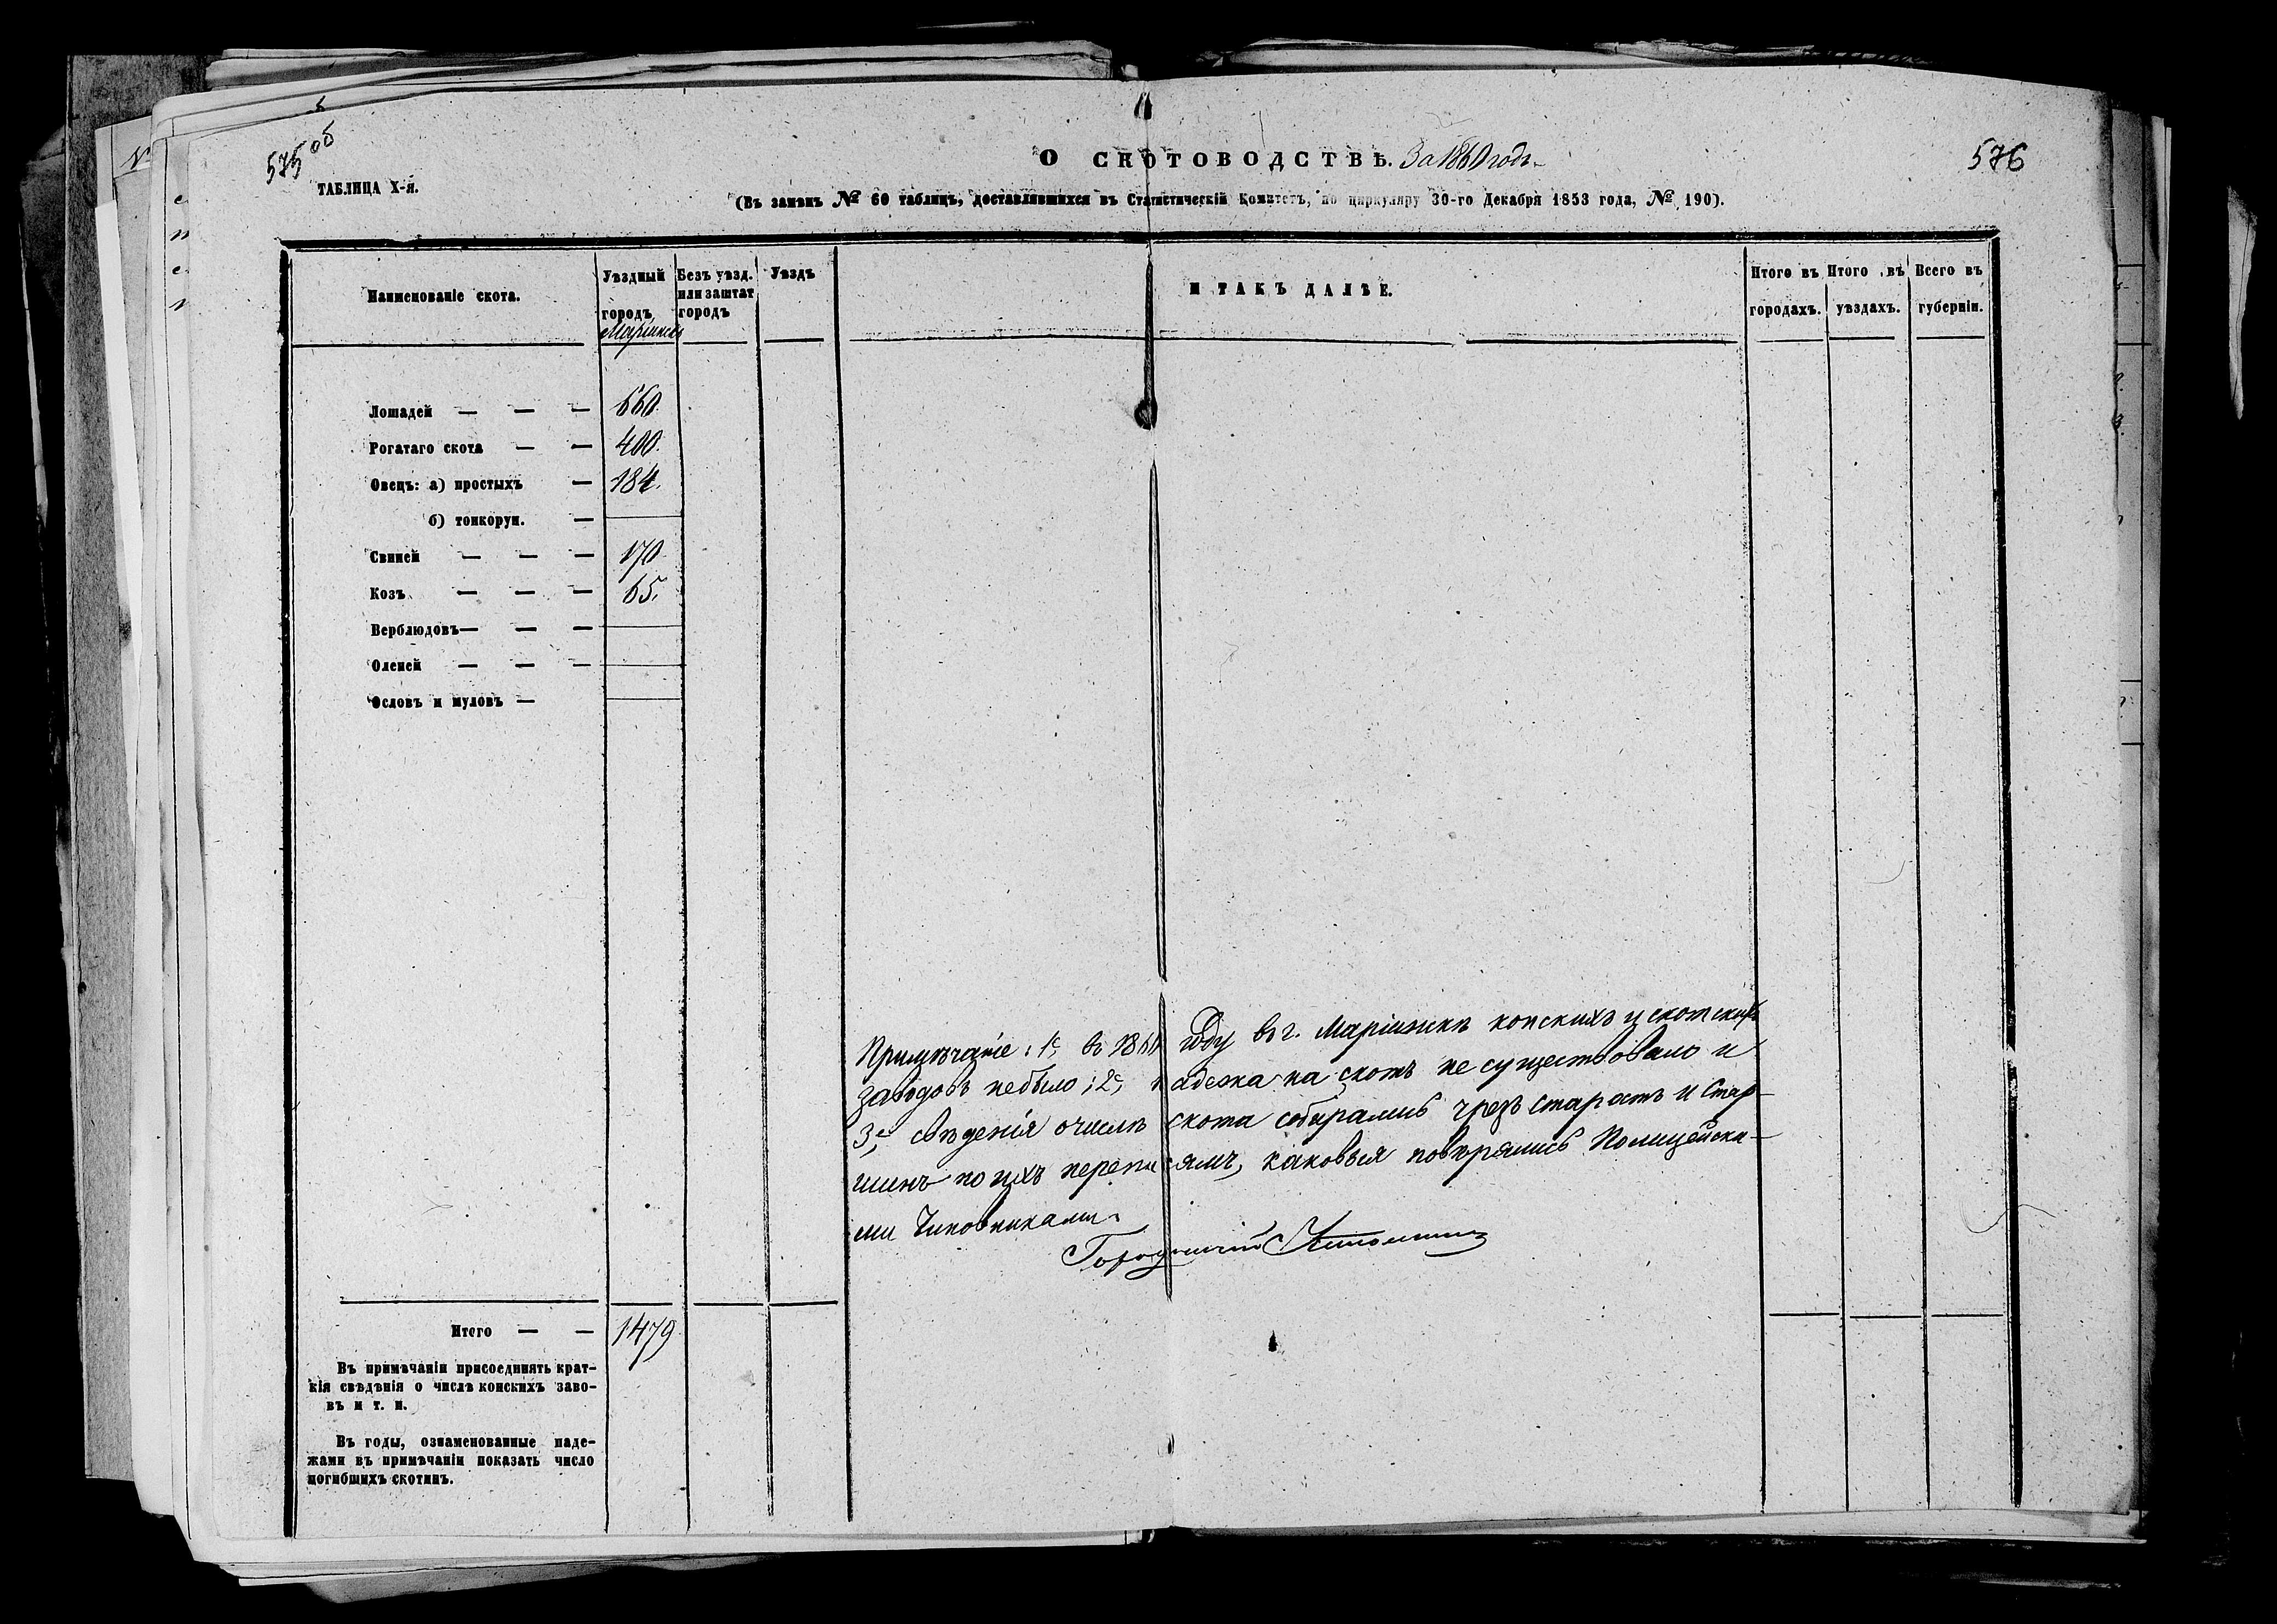 575 об
576
О СКОТОВОДСТВѢ. За 1860 годъ.
ТАБЛИЦА X-я.
(Въ замѣнъ № 60 таблицъ, доставлявшихся въ Статистическій Комитетъ, по циркуляру 30-го Декабря 1853 года, № 190).
Наименованіе скота.
Уѣздный городъ Маріинскъ
Безъ уѣзд. или заштат городъ
Уѣздъ
И ТАКЪ ДАЛѢЕ.
Итого въ городахъ.
Итого въ уѣздахъ.
Всего въ губерніи.
Лошадей — — — 660.
Рогатаго скота — — 400.
Овецъ: а) простыхъ — 184.
б) тонкорун. —
Свиней — — — 170
Козъ — — — 65.
Верблюдовъ — — —
Оленей — — —
Ословъ и муловъ —
Примѣчаніе: 1е, въ 1860 году въ г. Маріинскѣ конскихъ и скотскихъ
заводовъ небыло; 2е, падежа на скотъ не существовало и
3е, свѣденія очислѣ скота собирались чрезъ старостъ и Стар-
шинъ по ихъ переписямъ, каковыя повѣрялись Полицейски-
ми Чиновниками.
Городничій
Итого — — 1479
Въ примѣчаніи присоединять крат-
кія свѣдѣнія о числѣ конскихъ заво-
въ и т. п.
Въ годы, ознаменованные паде-
жами въ примѣчаніи показать число
погибшихъ скотинъ.